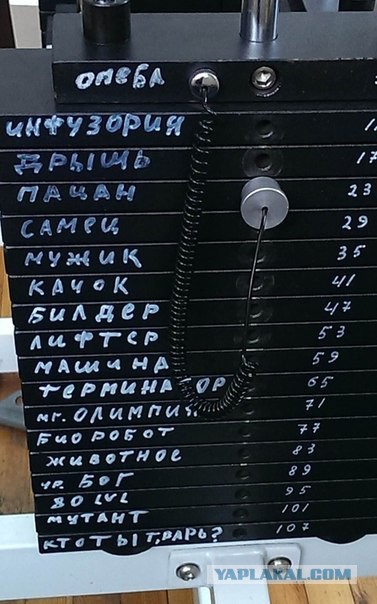 ОМЕБА
ИНФУЗОРИЯ
ДРЫЩЬ 17
ПАЦАН 23
САМЕЦ 29
МУЖИК 35
КАЧОК 41
БИЛДЕР 47
ЛИФТЕР 53
МАШИНА 59
ТЕРМИНАТОР 65
МГ. ОЛИМПИЯ 71
БИОРОБОТ 77
ЖИВОТНОЕ 83
УР. БОГ 89
80 LVL 95
МУТАНТ 101
КТО ТЫ Т,ВАРЬ? 107
YAPLAKAL.COM